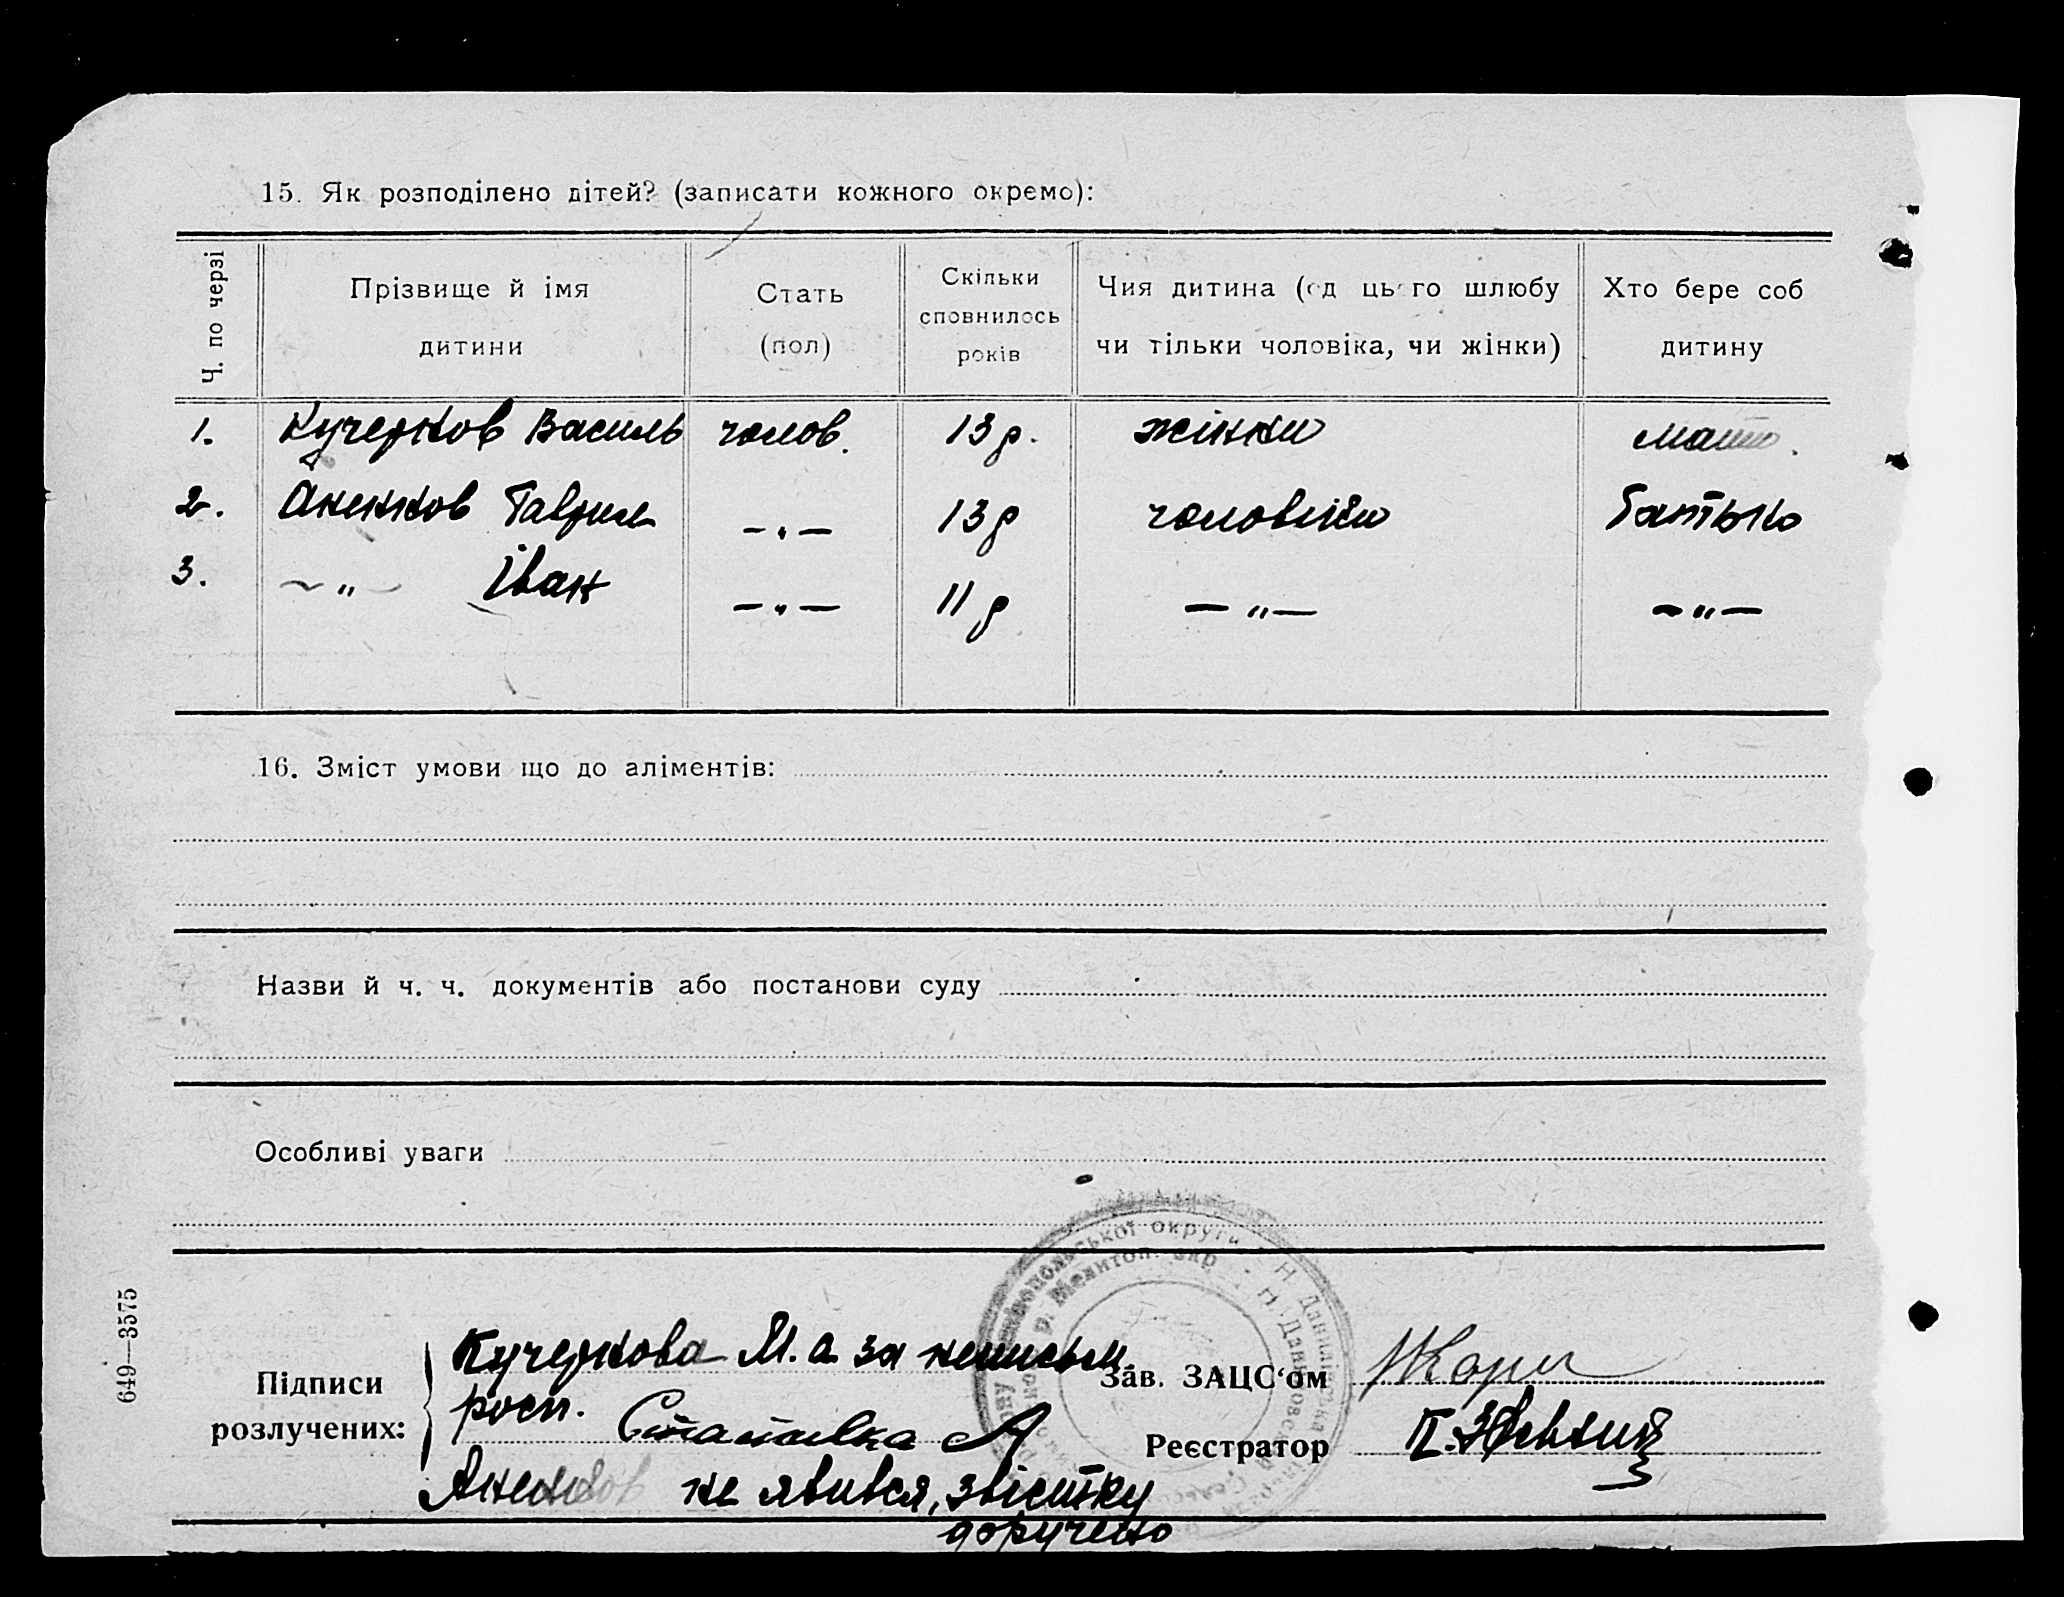 15. Як розподілено дітей? (записати кожного окремо):
Ч. по черзі
Прізвище й імя дитини
Стать (пол)
Скільки сповнилось років
Чия дитина (од цього шлюбу чи тільки чоловіка, чи жінки)
Хто бере соб дитину
1. Кучерков Василь чолов. 13 р. жінки мати.
2. Аненков Гаврил -„- 13 р чоловіка батько
3. -„- Іван -„- 11 р -„- -„-
16. Зміст умови що до аліментів:
Назви й ч. ч. документів або постанови суду
Особливі уваги
649—3575
Підписи розлучених:
Кучеркова М. а за неписьм.
росп.
Аненков не явився, звістку
доручено
Зав. ЗАЦС‘ом
Реєстратор
округи
Мелитоп. окр